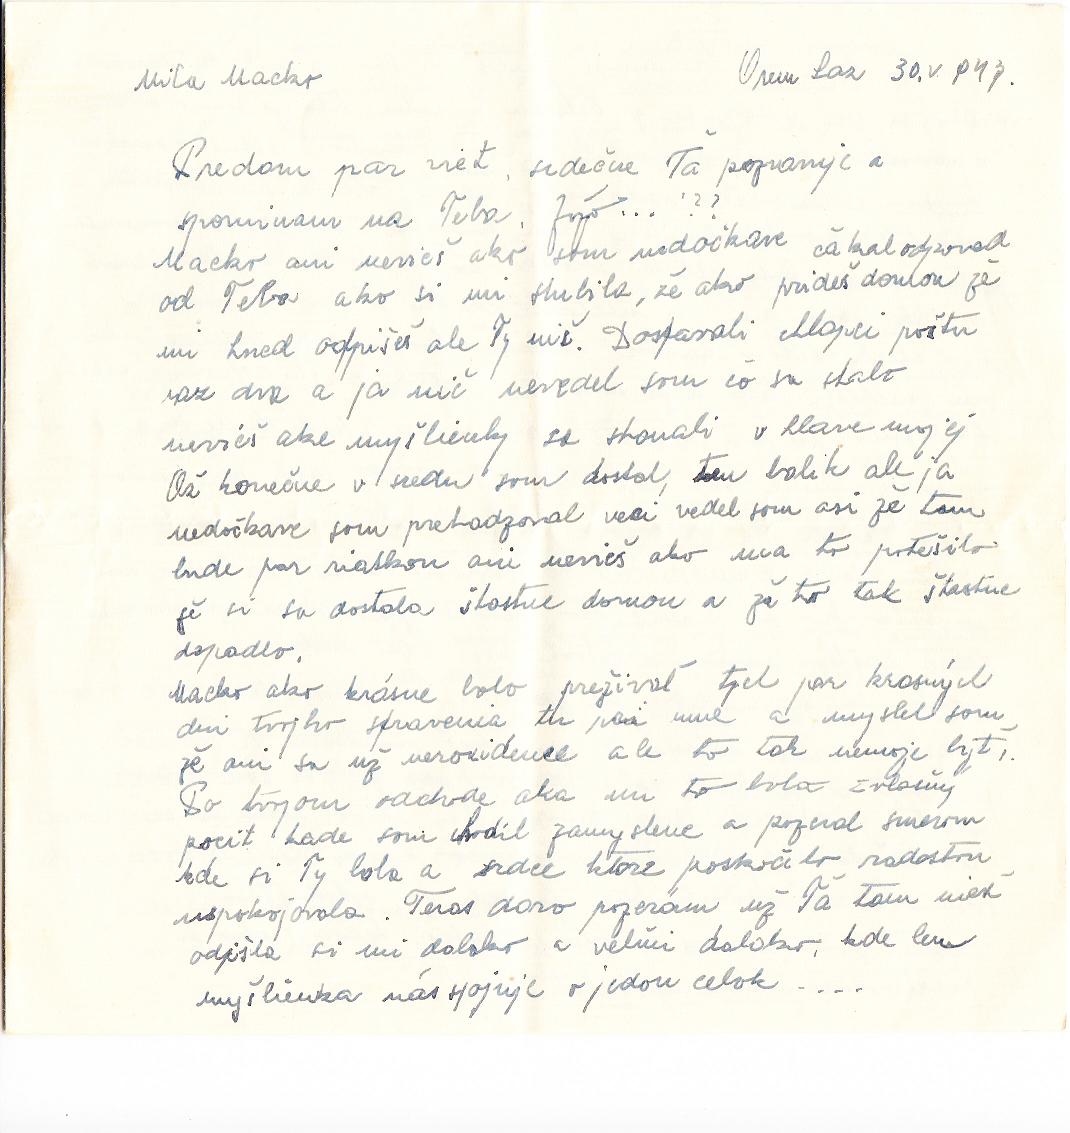 Mila Macko
Orem Laz 30.V.1947.
Predom par viet, srdečne Ťa pozravuje a
spominam na Teba. Jožo... ???
Macko ani nevieš ako som nedočkave čakal odpoveď
od Teba ako si mi slubila, že ako prideš domou že
mi hned odpišeš ale Ty nič. Dostavali chlapci poštu
raz dva a ja nič nevedel som čo sa stalo
nevieš ake myšlienky sa skonali v hlave mojej
Až konečne v sredu som dostal, ten balik ale ja
nedočkave som prehadzoval veci vedel som asi že tam
bude par riaškou ani nevieš ako ma to potešilo
že si sa dostala šťastne domou a že to tak šťastne
dopadlo.
Macko ako krásne bolo preživať tych par krasných
dni tvojho travenia tu pri mne a myslel som
že ani sa už nerozidence ale to tak nemoje byť,.
Po tvojom odchode aka mi to bola zvlašny
pocit kade som chodil zamyslene a pozeral smerom
kde si Ty bola a srdce ktore poskočilo radostou
uspokojovala. Teras daro pozerám už Ťa tam niet
odpišla si mi daloko a velmi daloko, kde len
myšlienka nás spojuje v jedon celok ....